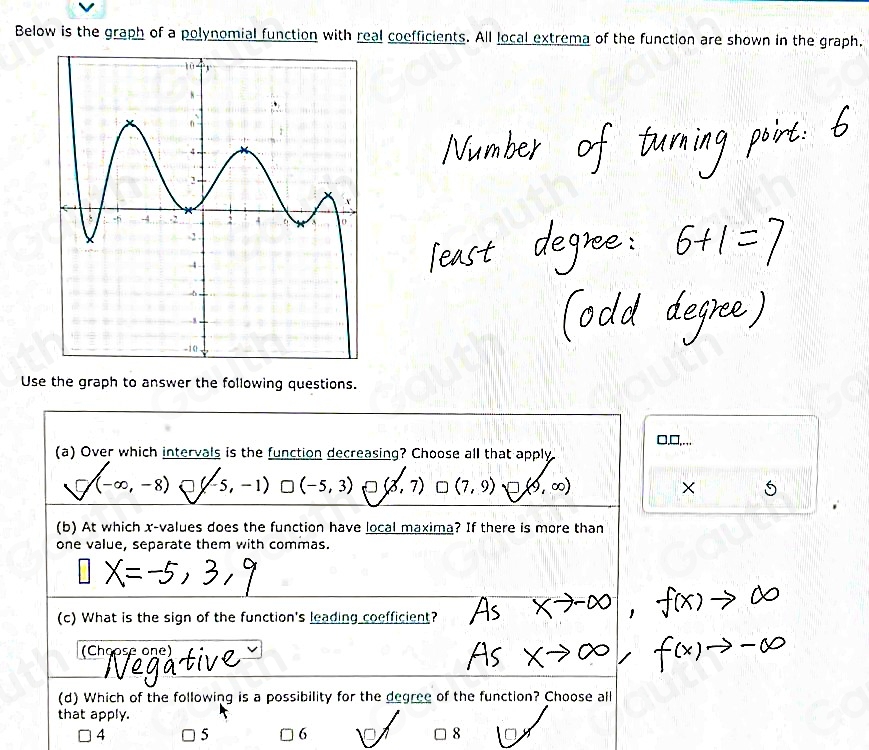 Below is the graph of a polynomial function with real coefficients. All local extrema of the function are shown in the graph.
Number of turning point: 6
least degree: 6+1=7
(odd degree)
Use the graph to answer the following questions.
(a) Over which intervals is the function decreasing? Choose all that apply.
(-∞, -8) (-5, -1) (-5, 3) (3, 7) (7, 9) (9, ∞)
(b) At which x-values does the function have local maxima? If there is more than
one value, separate them with commas.
X=-5, 3, 9
(c) What is the sign of the function's leading coefficient?
(Choose one)
Negative
As x→-∞, f(x)→ ∞
As x→∞, f(x)→ -∞
(d) Which of the following is a possibility for the degree of the function? Choose all
that apply.
4 5 6 7 8 9